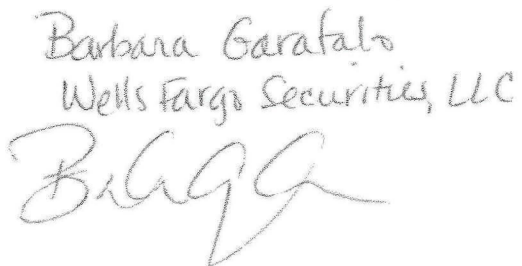 Barbara Garafalo
Wells Fargo Securities, LLC